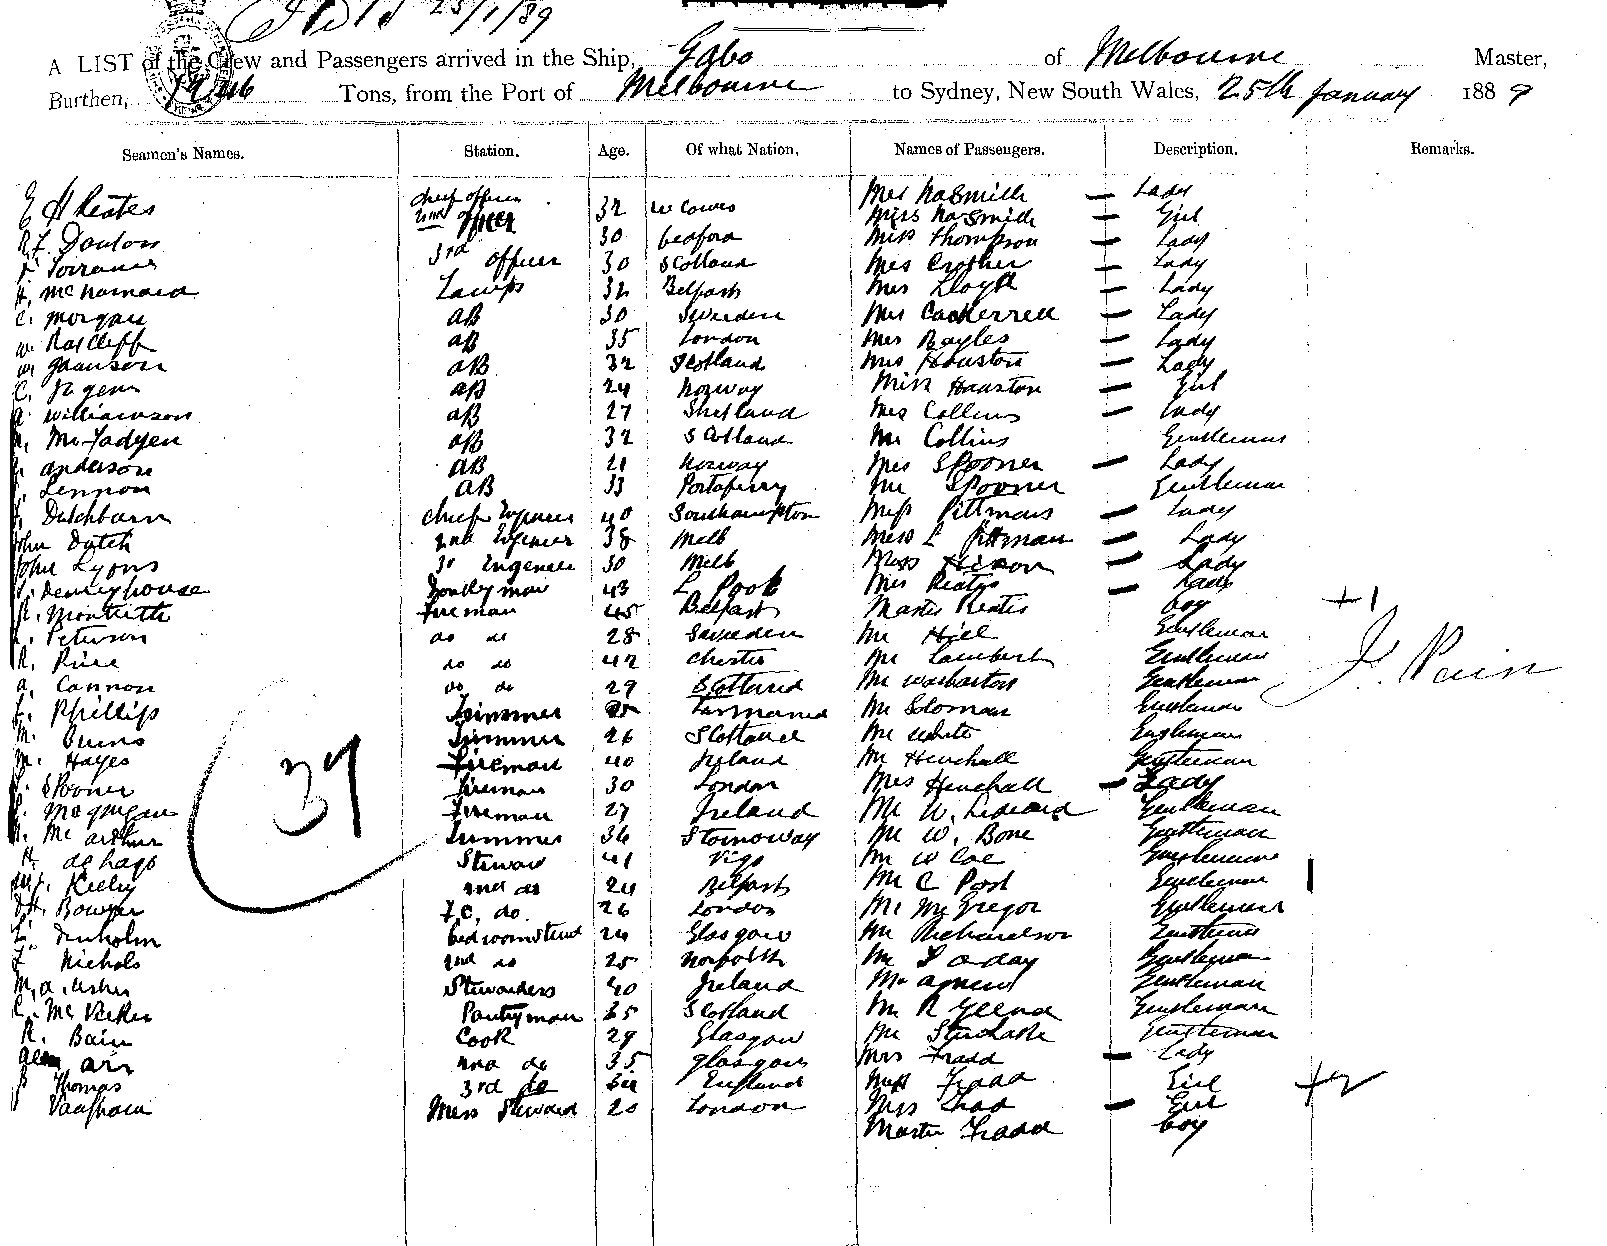 25/1/89
A LIST of the Crew and Passengers arrived in the Ship, Gabo of Melbourne Master,
Burthen, Tons, from the Port of Melbourne to Sydney, New South Wales, 25th January 1889
Seamen's Names. Station. Age. Of what Nation. Names of Passengers. Description. Remarks.
E H Keates chief officer 32 W Cowes Mrs NaSmith — Lady
2nd officer Miss NaSmith — Girl
R.F. Doulon 30 Bedford Miss Thompson — Lady
Torrance 3rd officer 30 Scotland Mrs Crother — Lady
McNamara Lamps 32 Belfast Mrs Lloyd — Lady
C. Morgan AB 30 Sweden Mrs Cockerrell — Lady
W. Ratcliff AB 35 London Mrs Bayles — Lady
AB 32 Scotland Mrs Houston — Lady
C. AB 24 Norway Miss Houston — Girl
Williamson AB 27 Shetland Mrs Collins — Lady
McFadyen AB 32 Scotland Mr Collins Gentleman
Anderson AB 21 Norway Mrs Spooner — Lady
Lennon AB 33 Portaferry Mr Spooner Gentleman
Dutchburn chief Engineer 40 Southampton Miss Pittman — Lady
John Dutch 2nd Engineer 38 Melb Miss L Pittman — Lady
John Lyons 3d Engineer 30 Melb Miss Hixon — Lady
Dennyhouse Donkeyman 43 L Pool Mrs Keates — Lady
R. Montieth Fireman 45 Belfast Master Keates boy +1
Peterson do do 28 Sweden Mr Hill Gentleman
R. do do 42 Chester Mr Lambert Gentleman J. Pain
A. Cannon do do 29 Scotland Mr Warbarton Gentleman
Phillips Trimmer Tasmania Mr Soloman Gentleman
M. Burns Trimmer 26 Scotland Mr White Gentleman
M. Hayes Fireman 40 Ireland Mr Henchall Gentleman
Spooner Fireman 30 London Mrs Henchall — Lady
McGuigan Fireman 27 Ireland Mr W. Gentleman
McArthur Trimmer 36 Stornoway Mr W. Bone Gentleman
de Lago Steward 41 Vigo Mr W Coe Gentleman
Kelly 2nd do 24 Belfast Mr C Post Gentleman
Bowyer F.C. do. 26 London Mr McGregor Gentleman
Denholm bedroom Stewd 24 Glasgow Mr Richardson Gentleman
Nichols 2nd do 25 Norfolk Mr Gentleman
M.A. Usher Stewardess 40 Ireland Mr Agnew Gentleman
McVicker Pantryman 35 Scotland Mr R Gentleman
R. Bain Cook 29 Glasgow Mr Gentleman
2nd do 35 Glasgow Mrs Fradd — Lady
Thomas 3rd do England Miss Fradd Girl +2
Vaughan Mess Steward 20 London Miss — Girl
Master Fradd boy
37